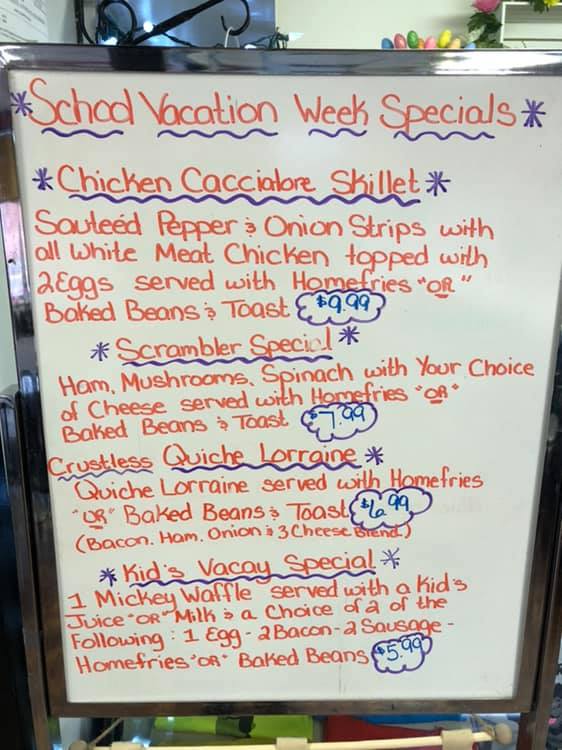 *School Vacation Week Specials*
*Chicken Cacciatore Skillet*
Sauteéd Pepper & Onion Strips with
all White Meat Chicken topped with
2 Eggs served with Homefries "OR"
Baked Beans & Toast $9.99
* Scrambler Special *
Ham, Mushrooms, Spinach with Your Choice
of Cheese served with Homefries "OR"
Baked Beans & Toast $7.99
Crustless Quiche Lorraine *
Quiche Lorraine served with Homefries
"OR" Baked Beans & Toast $6.99
(Bacon, Ham, Onion & 3 Cheese Blend)
* Kid's Vacay Special *
1 Mickey Waffle served with a Kid's
Juice "OR" Milk & a Choice of 2 of the
Following : 1 Egg - 2 Bacon - 2 Sausage -
Homefries "OR" Baked Beans $5.99